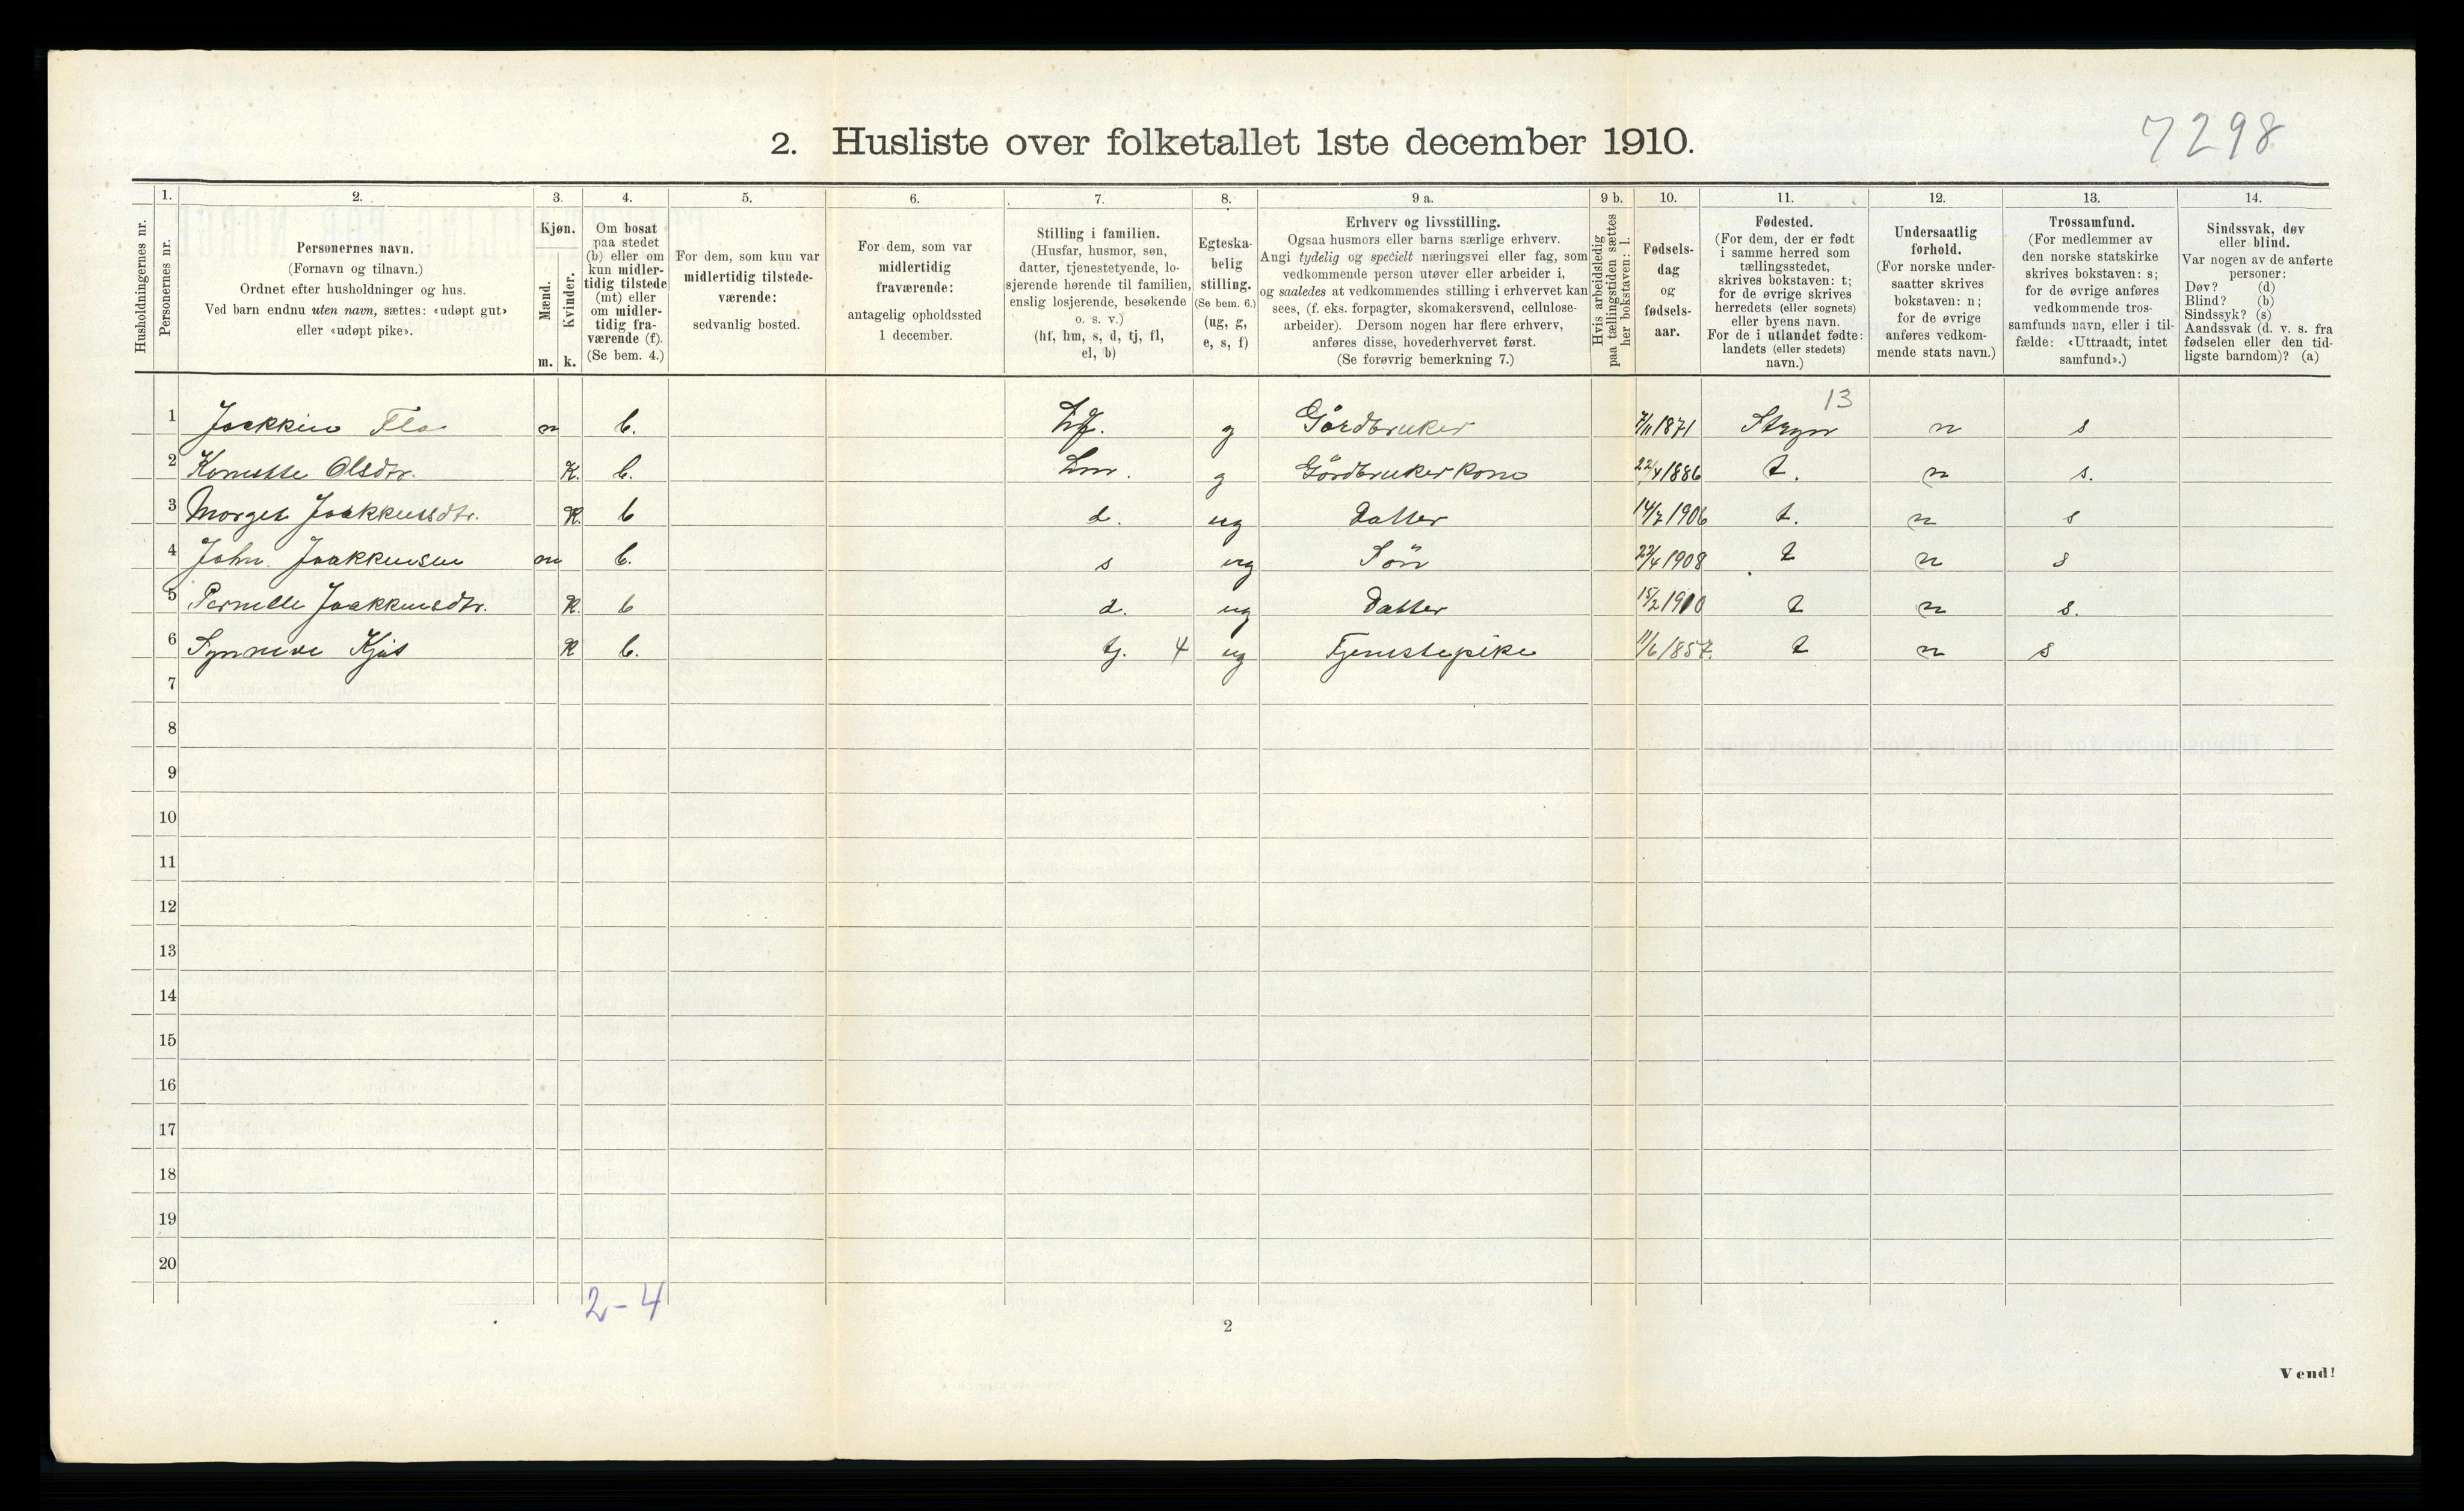 7298
2. Husliste over folketallet 1ste december 1910.
Husholdningernes nr.
1. Personernes nr.
2. Personernes navn. (Fornavn og tilnavn.) Ordnet efter husholdninger og hus. Ved barn endnu uten navn, sættes: «udøpt gut» eller «udøpt pike».
3. Kjøn. Mænd. m. Kvinder. k.
4. Om bosat paa stedet (b) eller om kun midlertidig tilstede (mt) eller om midlertidig fraværende (f). (Se bem. 4.)
5. For dem, som kun var midlertidig tilstedeværende: sedvanlig bosted.
6. For dem, som var midlertidig fraværende: antagelig opholdssted 1 december.
7. Stilling i familien. (Husfar, husmor, søn, datter, tjenestetyende, losjerende hørende til familien, enslig losjerende, besøkende o. s. v.) (hf, hm, s, d, tj, fl, el, b)
8. Egteskabelig stilling. (Se bem. 6.) (ug, g, e, s, f)
9 a. Erhverv og livsstilling. Ogsaa husmors eller barns særlige erhverv. Angi tydelig og specielt næringsvei eller fag, som vedkommende person utøver eller arbeider i, og saaledes at vedkommendes stilling i erhvervet kan sees, (f. eks. forpagter, skomakersvend, cellulosearbeider). Dersom nogen har flere erhverv, anføres disse, hovederhvervet først. (Se forøvrig bemerkning 7.)
9 b. Hvis arbeidsledig paa tællingstiden sættes her bokstaven: l.
10. Fødselsdag og fødselsaar.
11. Fødested. (For dem, der er født i samme herred som tællingsstedet, skrives bokstaven: t; for de øvrige skrives herredets (eller sognets) eller byens navn. For de i utlandet fødte: landets (eller stedets) navn.)
12. Undersaatlig forhold. (For norske undersaatter skrives bokstaven: n; for de øvrige anføres vedkommende stats navn.)
13. Trossamfund. (For medlemmer av den norske statskirke skrives bokstaven: s; for de øvrige anføres vedkommende trossamfunds navn, eller i tilfælde: «Uttraadt, intet samfund».)
14. Sindssvak, døv eller blind. Var nogen av de anførte personer: Døv? (d) Blind? (b) Sindssyk? (s) Aandssvak (d. v. s. fra fødselen eller den tidligste barndom)? (a)
13
1 Jaakkim Flo m b. hf. g Gårdbruker 7/11 1871 Stryn n s
2 Olsdtr. K. b. hm. g Gårdbrukerkone 22/4 1886 t. n s.
3 Marget Jaakkumsdtr. K. b d. ug datter 14/7 1906 t. n s
4 John Jaakkumsen m b. s ug Søn 22/4 1908 t n s
5 Pernille Jaakkumsdtr. K. b d. ug datter 15/2 1910 t n s.
6 Synneve Kjøs K b. tj. 4 ug Tjenestepike 11/6 1857. t n s
7
8
9
10
11
12
13
14
15
16
17
18
19
20
2-4
2
Vend!